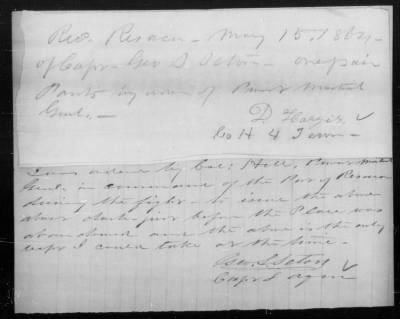 Rec. Resaca - May 15. 1864.
of Capt Geo S Seton - one pair
Pants by order of Provo Marshal
Genl. -
D Harges
Co H 4 Tenn -
I was ordered by Col: Hill, Provo Marshal
Genl. in command of the Post of Resaca
during the fight - to issue the above
above date - just before the Place was
abandoned and the above is the only
rect I could take at the time -
Geo. S. Seton
Capt &